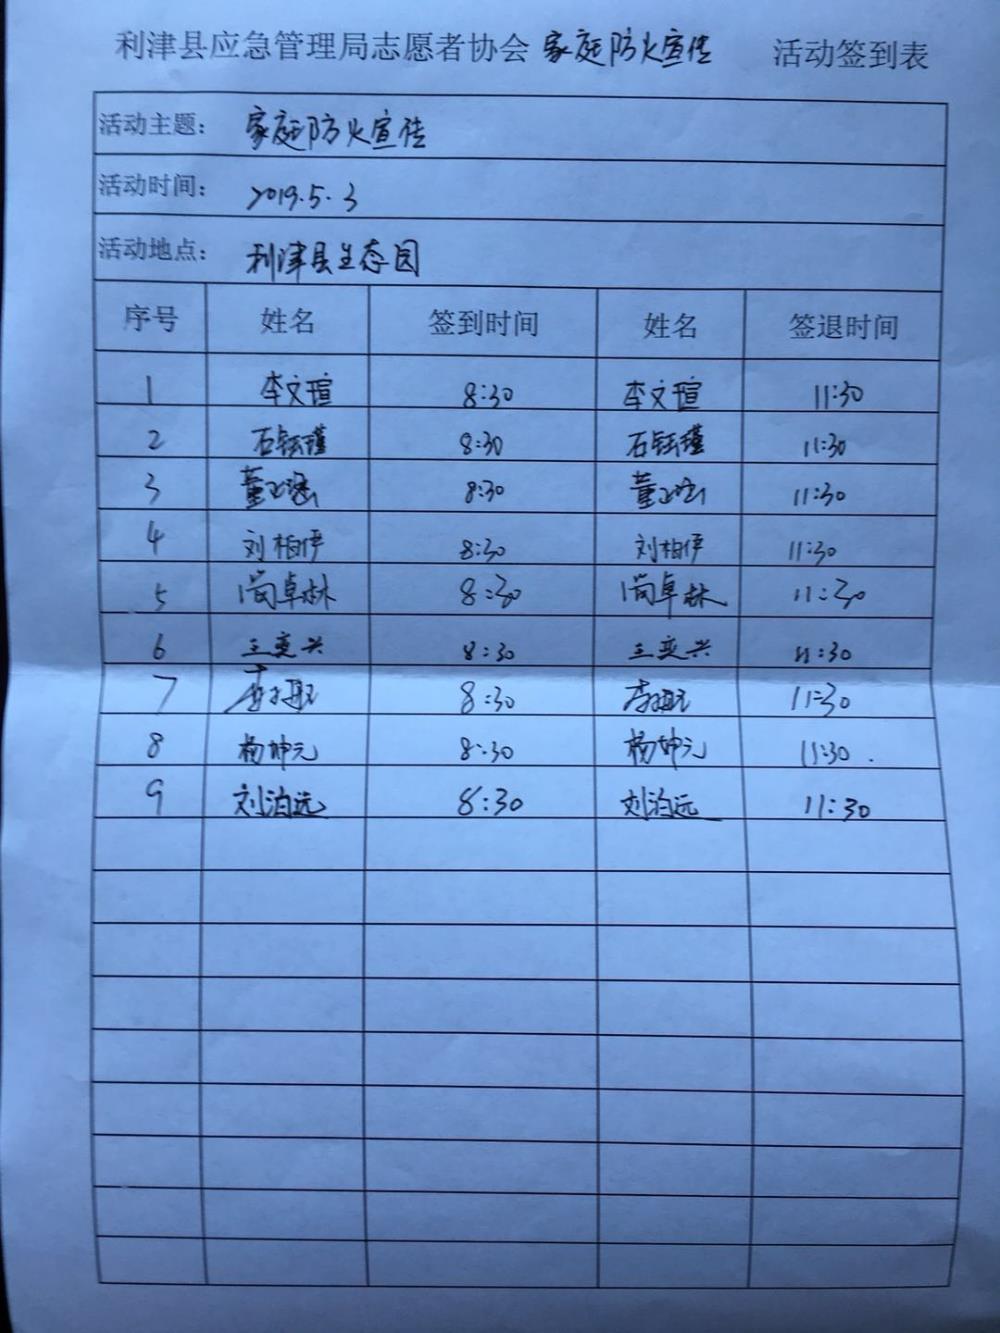 利津县应急管理局志愿者协会 家庭防火宣传 活动签到表
活动主题： 家庭防火宣传
活动时间： 2019.5.3
活动地点： 利津县生态园
序号 姓名 签到时间 姓名 签退时间
1 李文瑄 8:30 李文瑄 11:30
2 石钰瑾 8:30 石钰瑾 11:30
3 董 8:30 董 11:30
4 刘柏伊 8:30 刘柏伊 11:30
5 尚卓林 8:30 尚卓林 11:30
6 王奕兴 8:30 王奕兴 11:30
7 8:30 李 11:30
8 杨坤元 8:30 杨坤元 11:30.
9 刘泊远 8:30 刘泊远 11:30